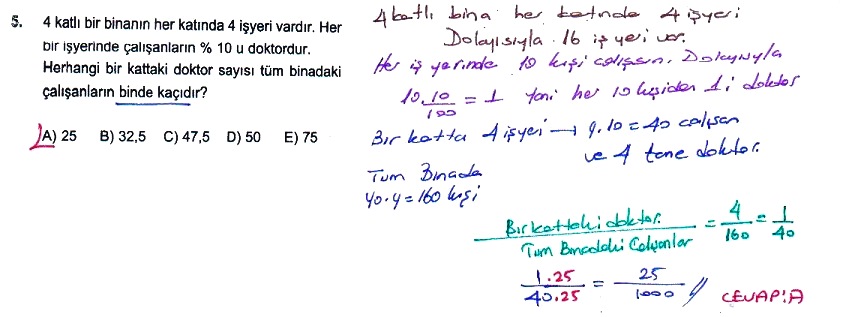 5. 4 katlı bir binanın her katında 4 işyeri vardır. Her
bir işyerinde çalışanların % 10 u doktordur.
Herhangi bir kattaki doktor sayısı tüm binadaki
çalışanların binde kaçıdır?
A) 25 B) 32,5 C) 47,5 D) 50 E) 75
4 katlı bina her katında 4 işyeri
Dolayısıyla 16 iş yeri var.
Her iş yerinde 10 kişi çalışsın. Dolayısıyla
10.10/100 = 1 Yani her 10 kişiden 1 i doktor
Bir katta 4 işyeri → 4.10 = 40 çalışan
ve 4 tane doktor.
Tüm Binada
40.4 = 160 kişi
Bir kattaki doktor / Tüm Binadaki Çalışanlar = 4/160 = 1/40
1.25/40.25 = 25/1000 // CEVAP:A